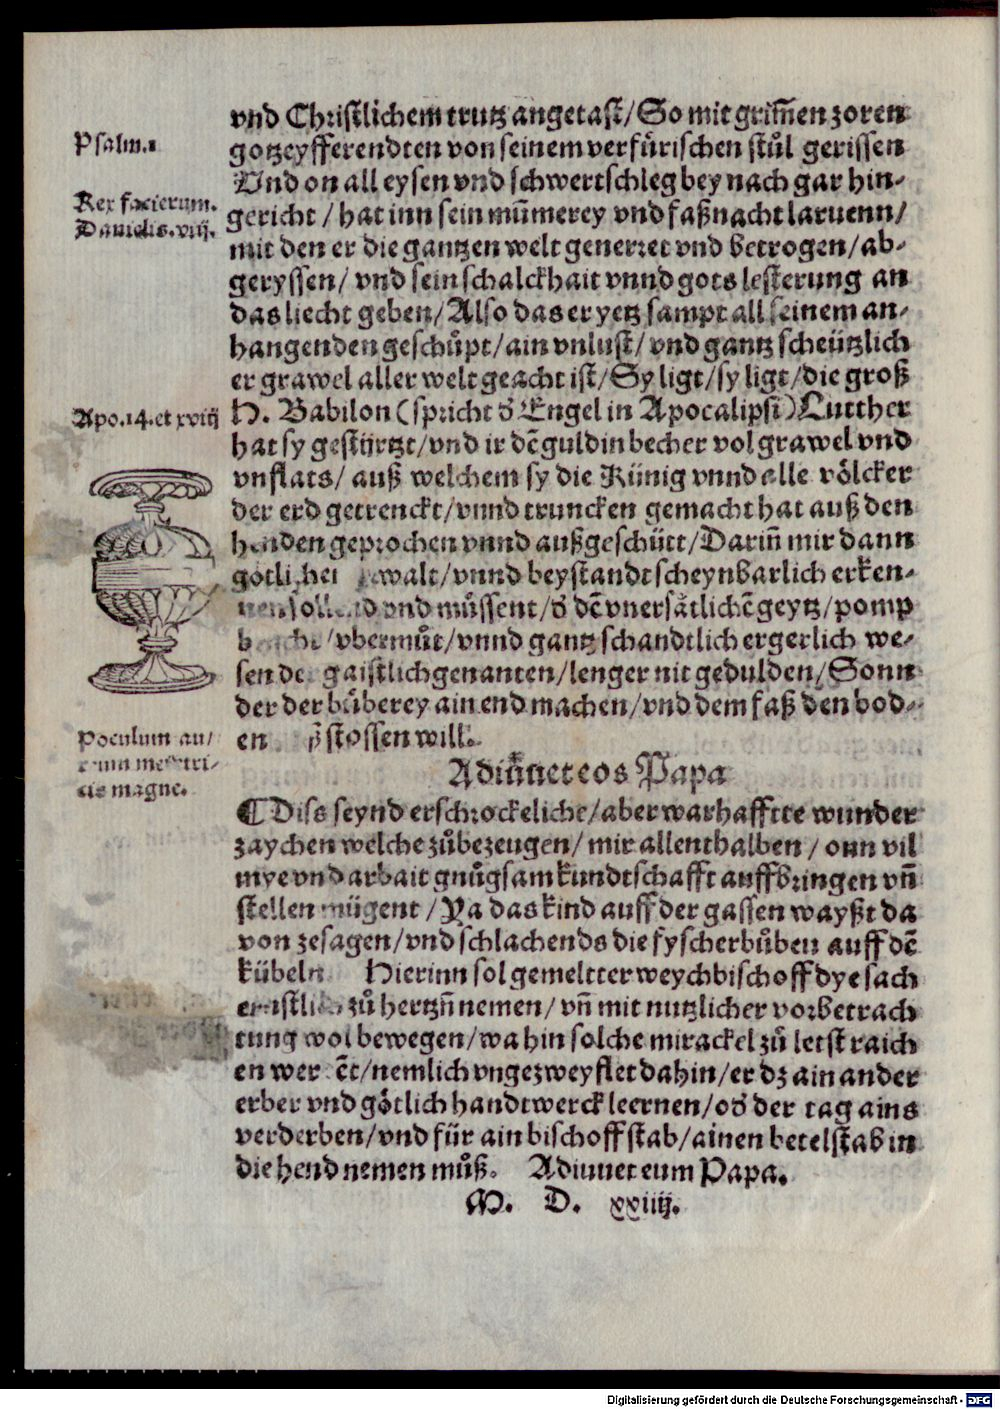 vnd Christlichem trutz angetast/So mit grim̃en zoren
Psalm.
gotzeyfferendten von seinem verfürischen stůl gerissen
Vnd on all eysen vnd schwertschleg bey nach gar hin-
Rex facierum.
gericht/hat inn sein mum̃erey vnd faßnacht laruenn/
Danielis.viij.
mit den er die gantzen welt generret vnd betrogen/ab-
geryssen/vnd sein schalckhait vnnd gots lesterung an
das liecht geben/Also das er yetz sampt all seinem an-
hangenden geschůpt/ain vnlust/vnd gantz scheützlich
er grawel aller welt geacht ist/Sy ligt/sy ligt/die groß
Apo.14.et xviij
H. Babilon (spricht ď Engel in Apocalipsi) Lutther
hat sy gestürtzt/vnd ir dẽ guldin becher vol grawel vnd
vnflats/auß welchem sy die Künig vnnd alle völcker
der erd getrenckt/vnnd truncken gemacht hat auß den
henden geprochen vnnd außgeschütt/Dariñ mir dann
gewalt/vnnd beystandt scheynbarlich erken-
vnd müssent/ď dẽ vnersätlichẽ geytz/pomp
vbermůt/vnnd gantz schandtlich ergerlich we-
sen der gaistlich genanten/lenger nit gedulden/Sonn
der der bůberey ain end machen/vnd dem faß den bod-
en stossen will.
Poculum au/
meretri-
cis magne.
Adiuuet eos Papa
¶ Diss seynd erschrockeliche/aber warhafftte wunder
zaychen welche zůbezeugen/mir allenthalben/onn vil
mye vnd arbait gnůgsam kundtschafft auffbringen vñ
stellen mügent/Ya das kind auff der gassen wayßt da
von zesagen/vnd schlachends die fyscherbůben auff dẽ
kübeln Hierinn sol gemeltter weychbischoff dye sach
ernstlich zů hertzñ nemen/vñ mit nutzlicher vorbetrach
tung wol bewegen/wa hin solche mirackel zů letst raich
en /nemlich vngezweyflet dahin/er dz ain ander
erber vnd götlich handtwerck leernen/oď der tag ains
verderben/vnd für ain bischoffstab/ainen betelstab in
die hend nemen můß. Adiuuet eum Papa.
M. D. xxiiij.
Digitalisierung gefördert durch die Deutsche Forschungsgemeinschaft - DFG